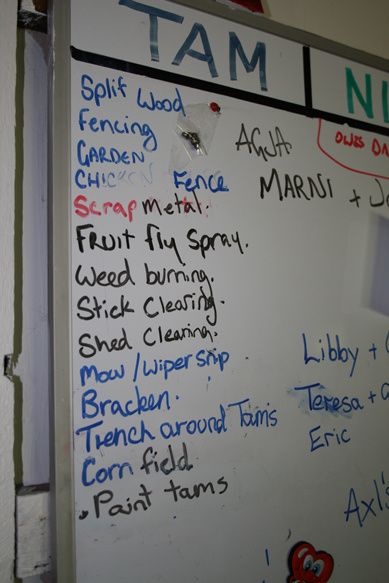 TAM
NI
Split Wood
Fencing
GARDEN
CHICKEN Fence
Scrap metal.
Fruit fly spray.
Weed burning.
Stick Clearing.
Shed Clearing.
Mow / Wipersnip
Bracken.
Trench around Tams
Corn field
. Paint tams
AGJA
OWES DA
MARNI + J
Libby + 
Teresa + a
Eric
Axl's